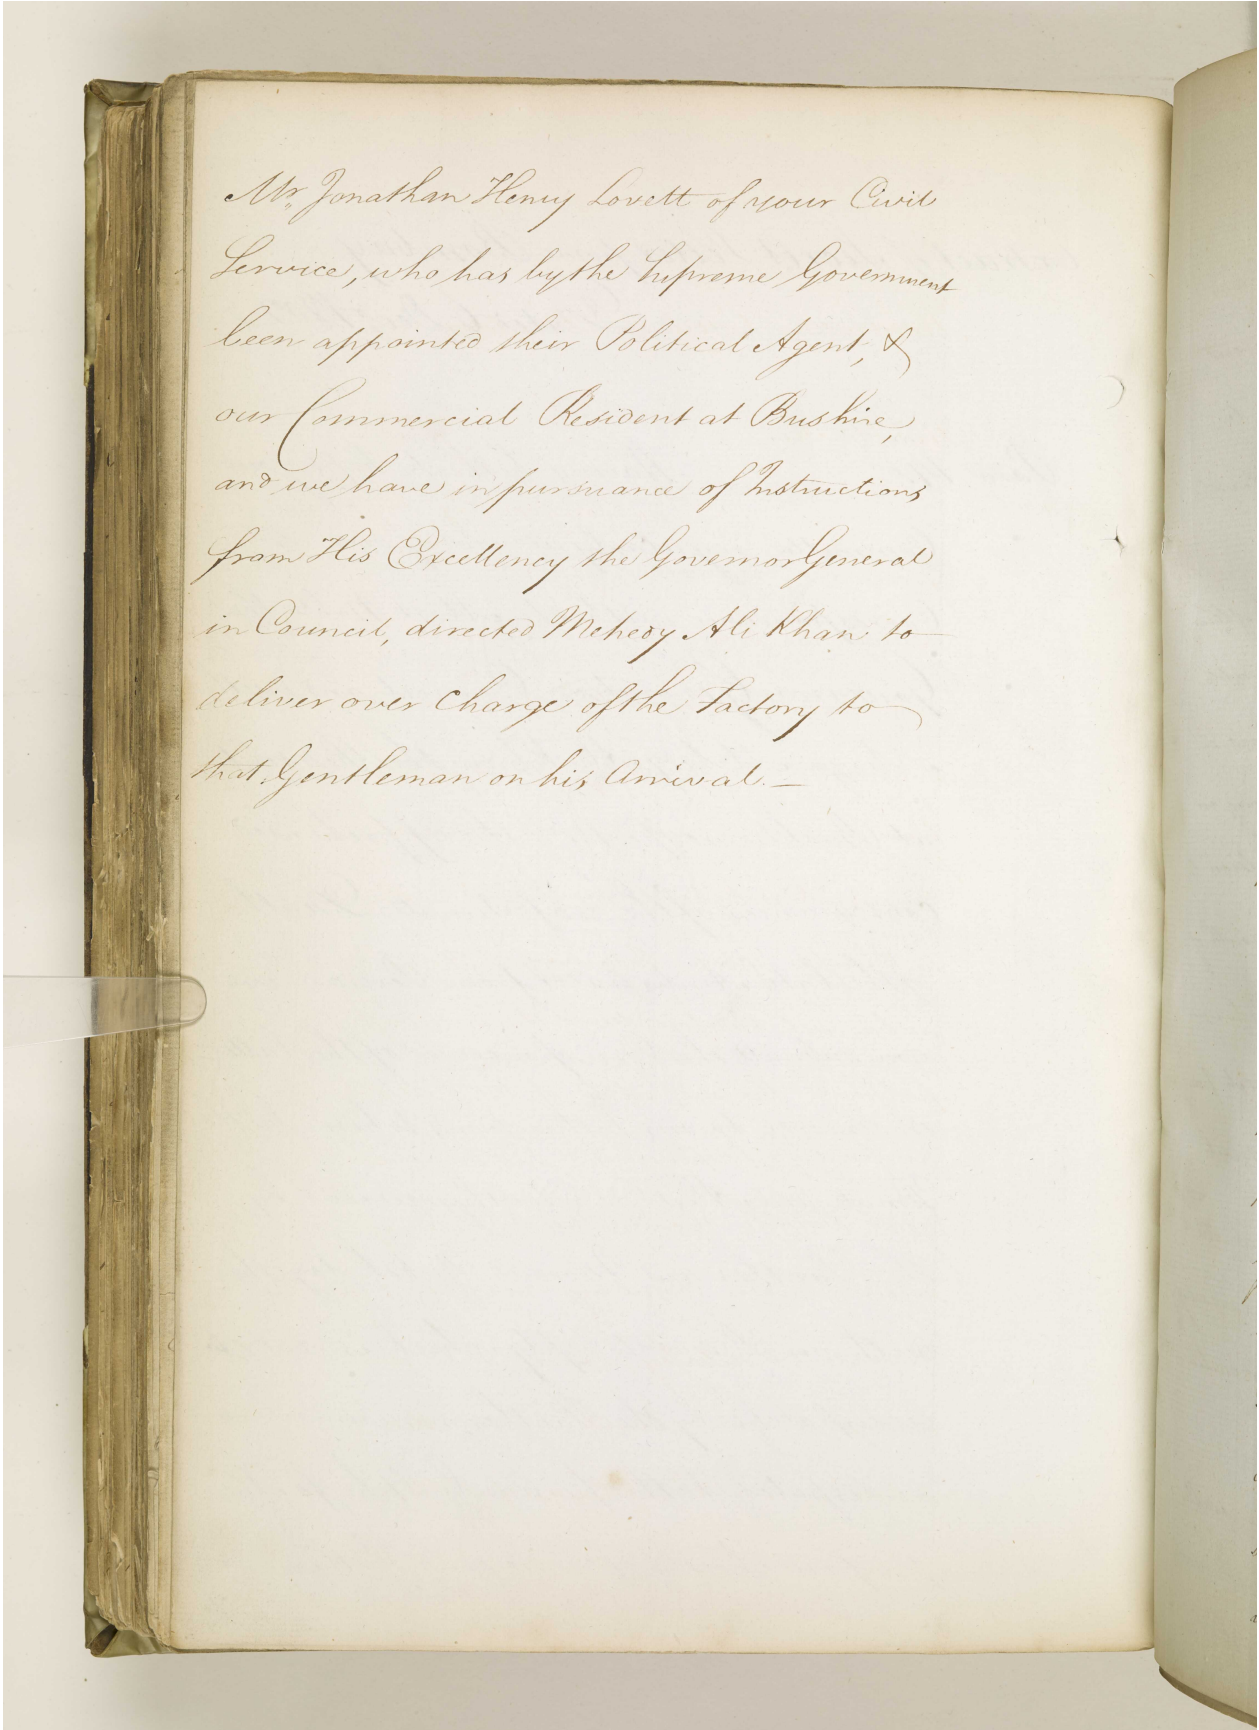 Mr. Jonathan Henry Lovett of your Civil
Service, who has by the Supreme Government
been appointed their Political Agent, &
our Commercial Resident at Bushire,
and we have in pursuance of Instructions
from His Excellency the Governor General
in Council, directed Mehedy Ali Khan to
deliver over charge of the Factory to
that Gentleman on his Arrival. —